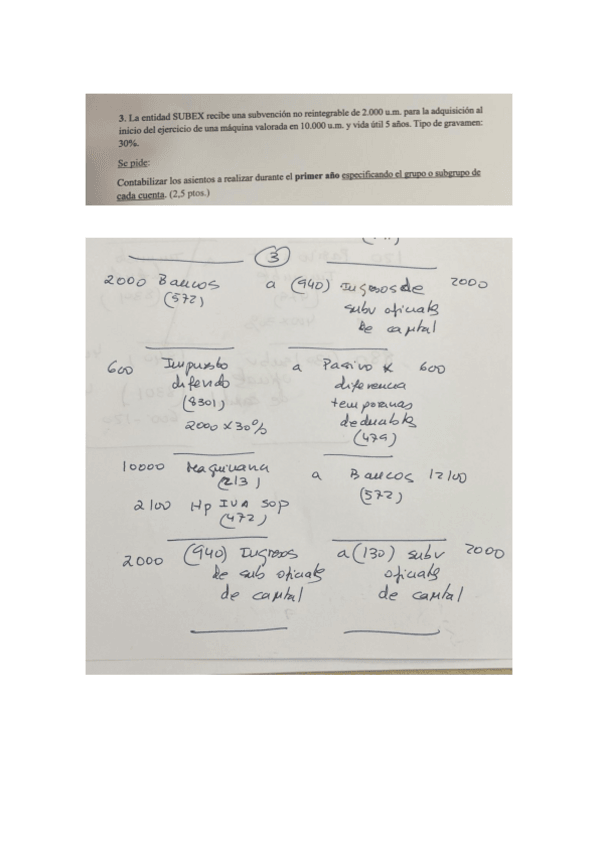 3. La entidad SUBEX recibe una subvención no reintegrable de 2.000 u.m. para la adquisición al
inicio del ejercicio de una máquina valorada en 10.000 u.m. y vida útil 5 años. Tipo de gravamen:
30%.
Se pide:
Contabilizar los asientos a realizar durante el primer año especificando el grupo o subgrupo de
cada cuenta. (2,5 ptos.)
3
2000 Bancos a (940) Ingresos de 2000
(572) subv oficiales
de capital
600 Impuesto a Pasivo x 600
diferido diferencia
(8301) temporarias
2000 x 30% deducibles
(479)
10000 Maquinaria a Bancos 12100
(213) (572)
2100 Hp IVA sop
(472)
2000 (940) Ingresos a (130) subv 2000
de sub oficiales oficiales
de capital de capital